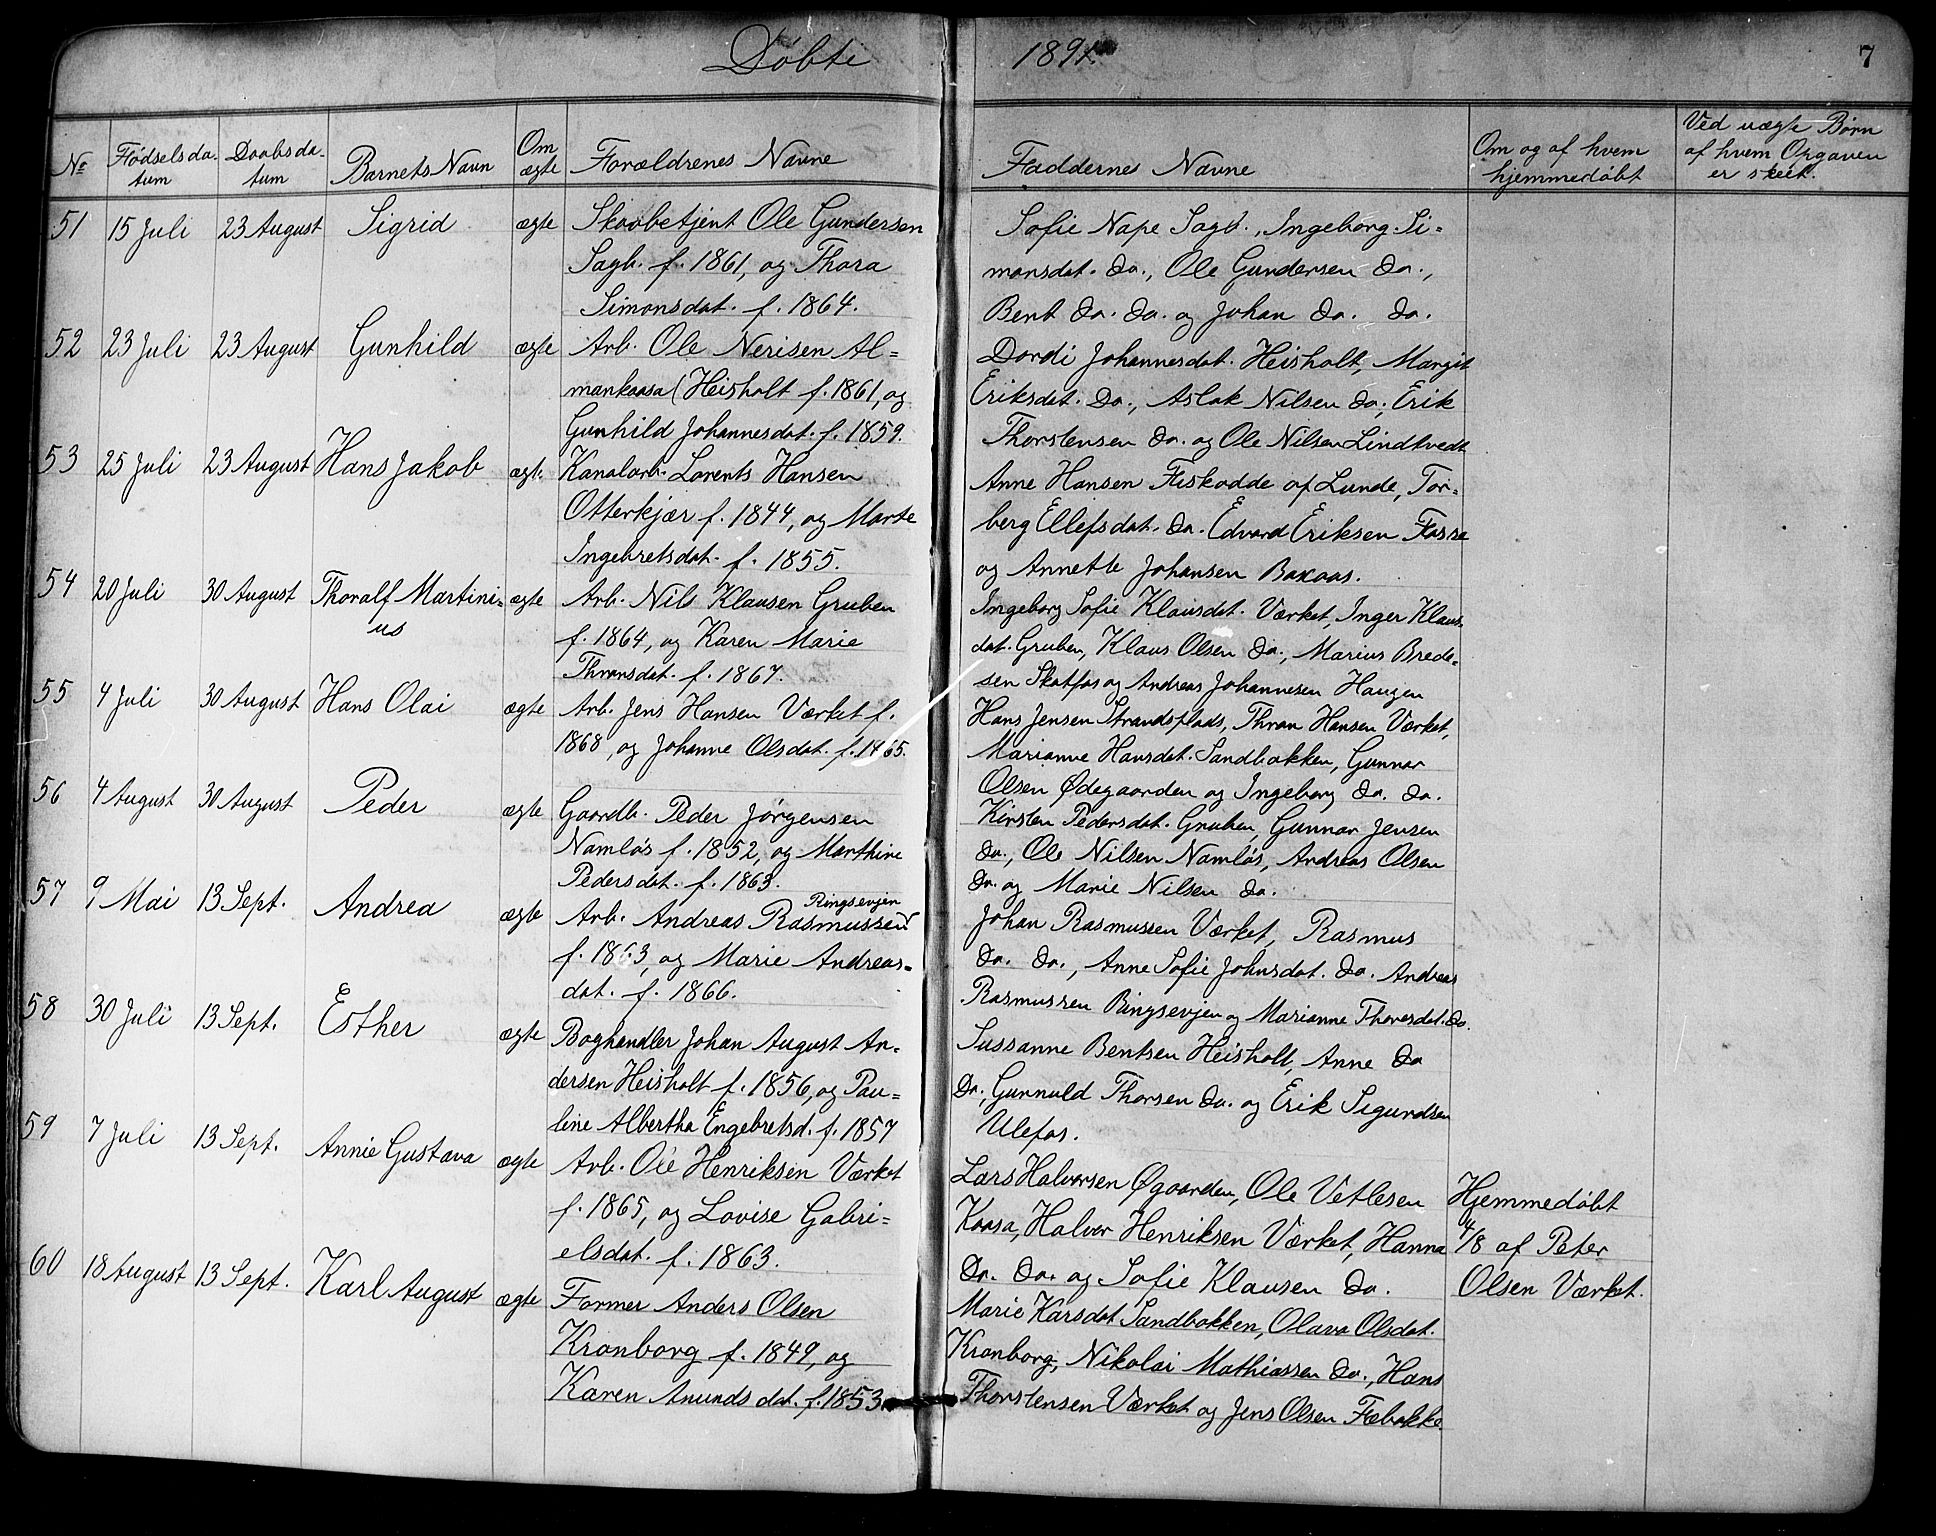 Døbte 1891. 7
No Fødselsda- Daabsda- Barnets Navn Om Forældrenes Navne Faddernes Navne Om og af hvem Ved uægte Børn
tum tum ægte hjemmedøbt af hvem Opgaven
er skeet.
51 15 Juli 23 August Sigrid ægte Skovbetjent Ole Gundersen Sofie Nape Sagb., Ingeborg Si-
Sagb. f. 1861, og Thora monsdat. Do., Ole Gundersen Do.,
Simonsdat. f. 1864. Bent Do. Do. og Johan Do. Do.
52 23 Juli 23 August Gunhild ægte Arb. Ole Nerisen Al- Dordi Johannesdat. Heisholt, Margit
mankaasa (Heisholt f. 1861, og Eriksdat. Do., Aslak Nilsen Do., Erik
Gunhild Johannesdat. f. 1859. Thorstensen Do. og Ole Nilsen Lindtvedt
53 25 Juli 23 August Hans Jakob ægte Kanalarb. Lorents Hansen Anne Hansen Fiskodde af Lunde, Tor-
Otterkjær f. 1844, og Marte berg Ellefsdat. Do. Edvard Eriksen Fosse
Ingebretsdat. f. 1855. og Annette Johansen Bakaas.
54 20 Juli 30 August Thoralf Martini- ægte Arb. Nils Klausen Gruben Ingeborg Sofie Klausdat. Værket, Inger Klaus-
us f. 1864, og Karen Marie dat. Gruben, Klaus Olsen Do., Marius Brede-
Thronsdat. f. 1867. sen Skotfos og Andreas Johannesen Haugen
55 4 Juli 30 August Hans Olai ægte Arb. Jens Hansen Værket f. Hans Jensen Strandsplads, Thron Hansen Værket,
1868, og Johanne Olsdat. f. 1865. Marianne Hansdat. Sandbakken, Gunnar
Olsen Ødegaarden og Ingeborg Do. Do.
56 4 August 30 August Peder ægte Gaardb. Peder Jørgensen Kirsten Pedersdat. Gruben, Gunnar Jensen
Namløs f. 1852, og Marthine Do., Ole Nilsen Namløs, Andreas Olsen
Pedersdat. f. 1863. Do. og Marie Nilsen Do.
Ringsevjen
57 9 Mai 13 Sept. Andrea ægte Arb. Andreas Rasmussen Johan Rasmussen Værket, Rasmus
f. 1863, og Marie Andreas- Do. Do., Anne Sofie Johnsdat. Do. Andreas
dat. f. 1866. Rasmussen Ringsevjen og Marianne Thoresdat. Do.
58 30 Juli 13 Sept. Esther ægte Boghandler Johan August An- Sussanne Bentsen Heisholt, Anne Do
dersen Heisholt f. 1856, og Pau- Do., Gunnuld Thorsen Do. og Erik Sigurdsen
line Albertha Engebretsd. f. 1857 Ulefos.
59 7 Juli 13 Sept. Annie Gustava ægte Arb. Ole Henriksen Værket Lars Halvorsen Øgaarden, Ole Vetlesen Hjemmedøbt
f. 1865, og Lovise Gabri- Kaasa, Halvor Henriksen Værket, Hanna 4/8 af Peter
elsdat. f. 1863. Do. Do. og Sofie Klausen Do. Olsen Værket.
60 18 August 13 Sept. Karl August ægte Former Anders Olsen Marie Karsdat. Sandbakken, Olava Olsdat.
Kronborg f. 1849, og Kronborg, Nikolai Mathiassen Do., Hans
Karen Amundsdat. f. 1853. Thorstensen Værket og Jens Olsen Fæbakke.